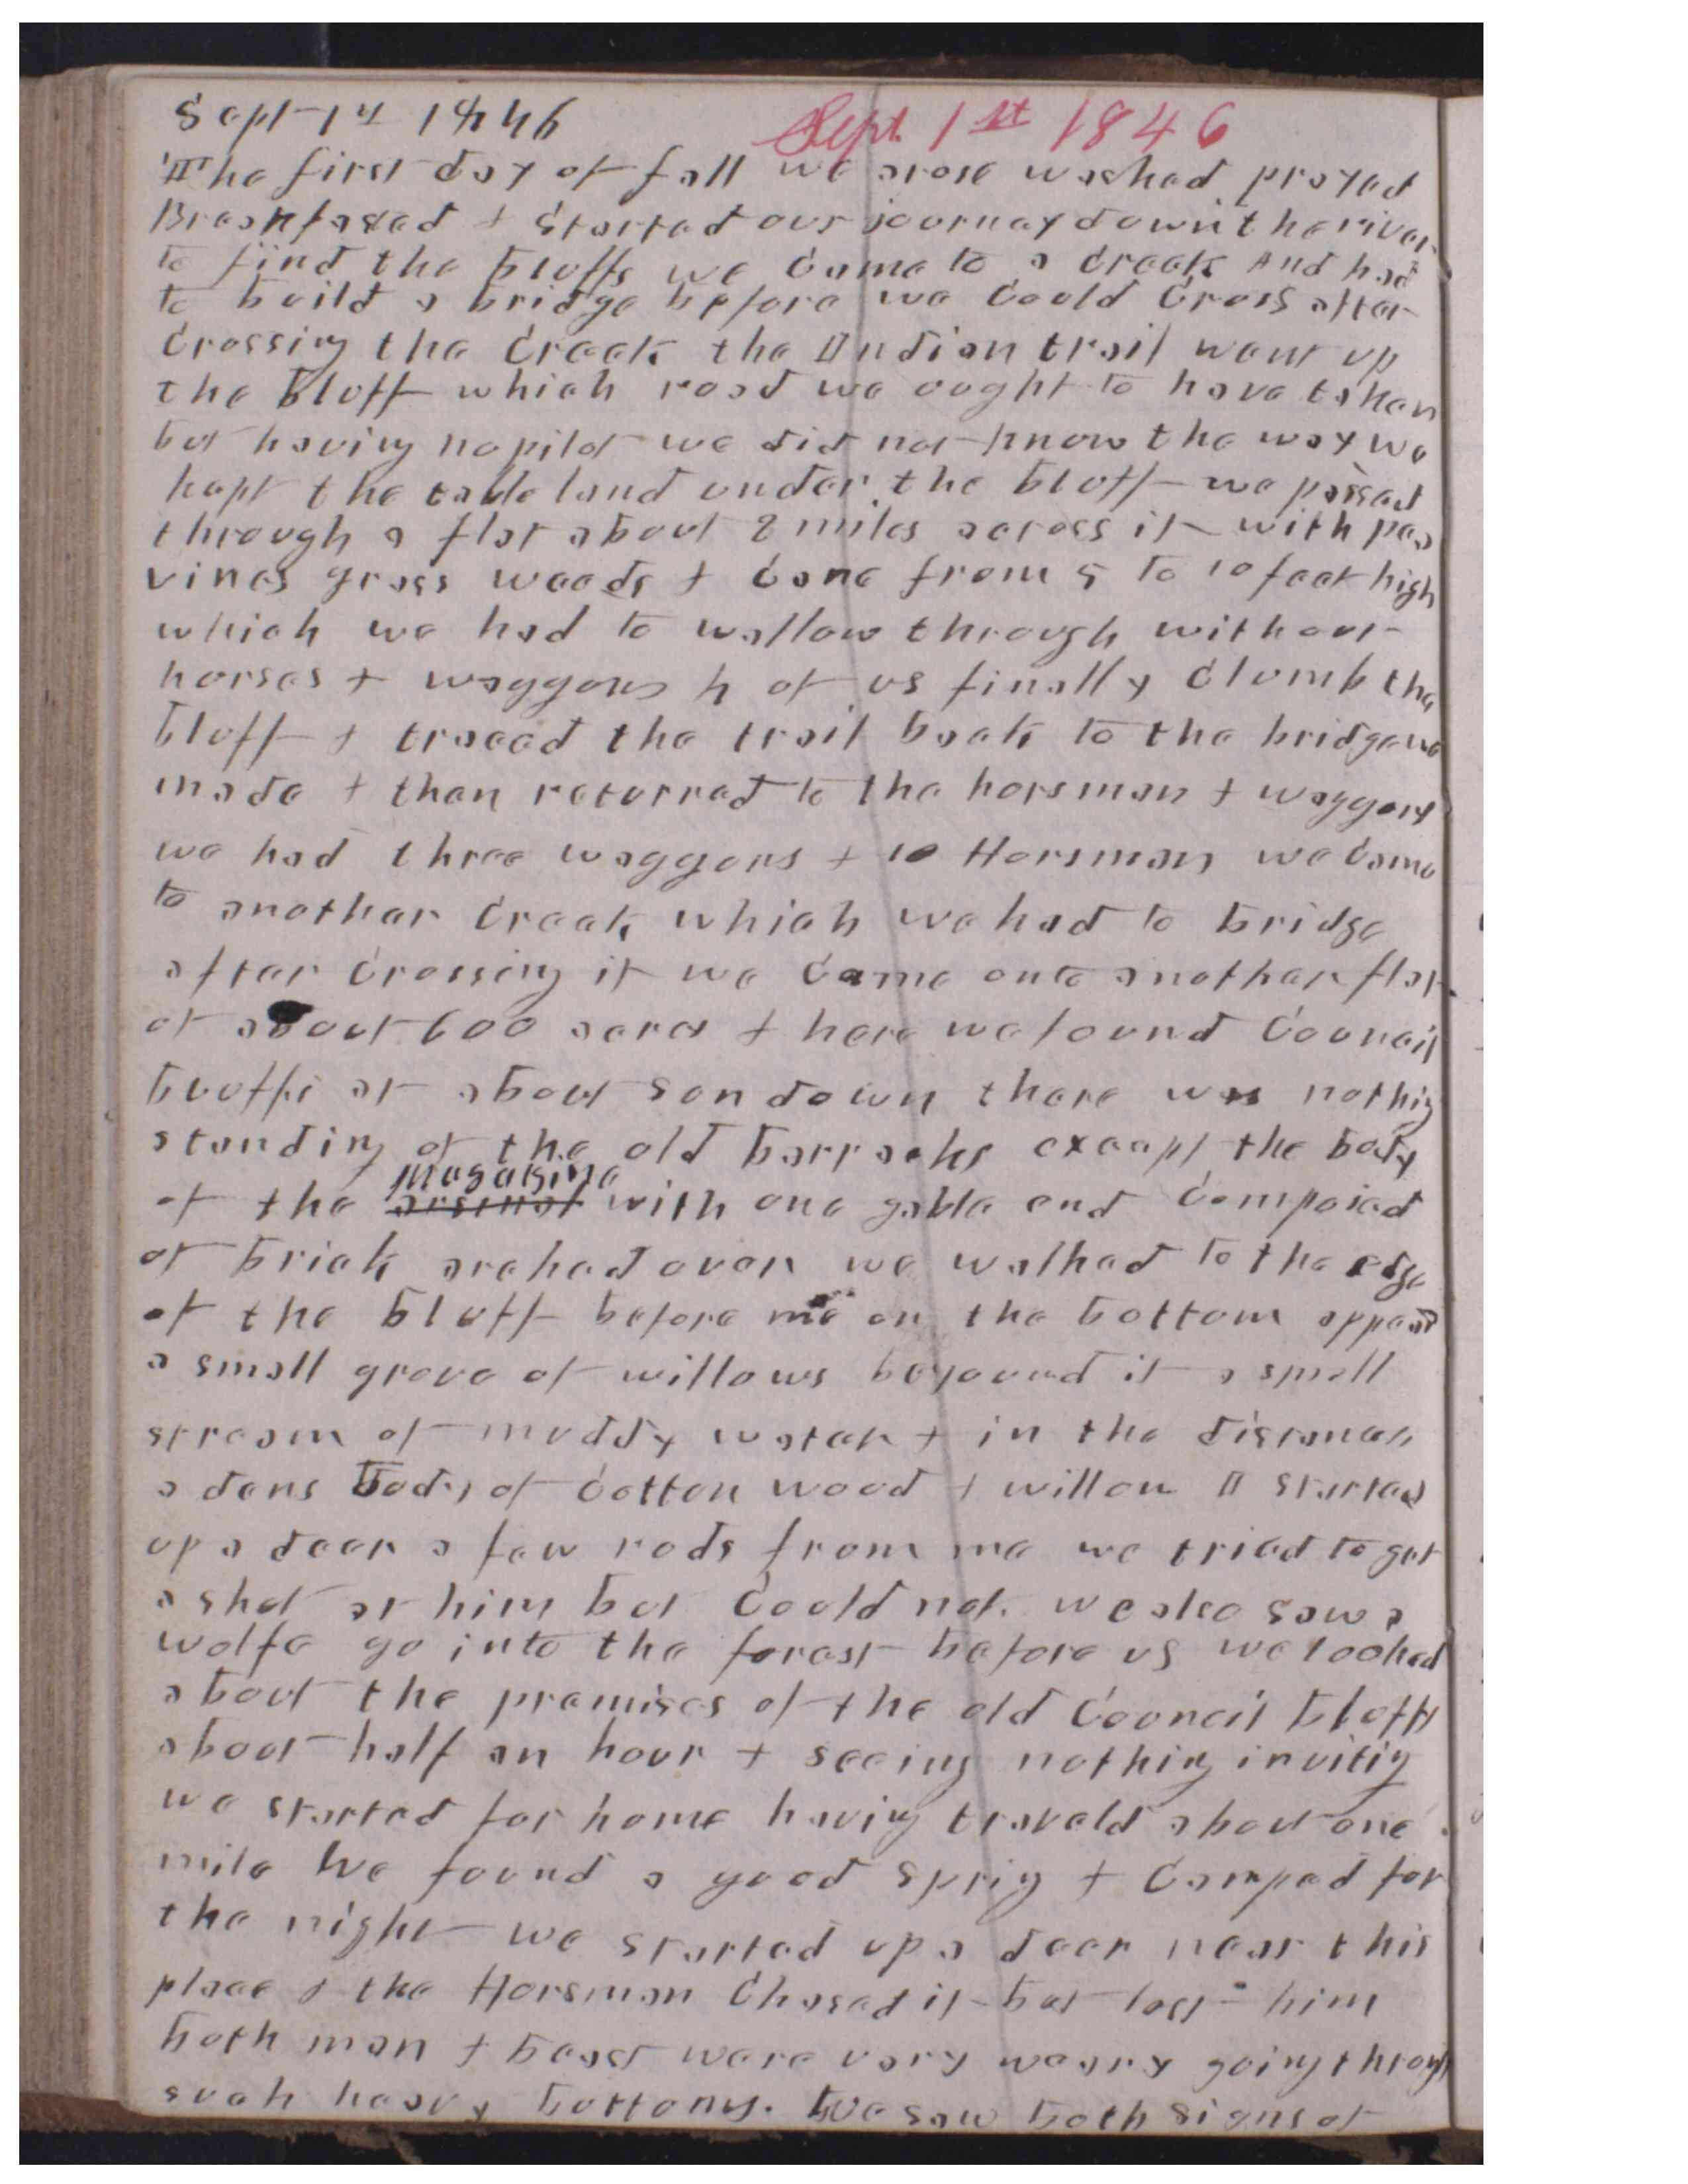 Sept 1st 1846 Sept. 1st 1846
The first day of fall we arose washed prayed
Breakfased + started our journey down the river
to find the bluffs we came to a creek And had
to build a bridge before we could cross after
crossing the creek the Indian trail went up
the Bluff which road we ought to have taken
but having no pilot we did not know the way we
kept the table land under the bluff we passed
through a flat about 2 miles across it with pea
vines grass weeds + cane from 5 to 10 feet high
which we had to wallow through with our
horses + waggons 4 of us finally clumb the
bluff + traced the trail back to the bridge we
made + then returned to the horsmen + waggons
we had three waggons + 10 Horsmen we came
to another creek which we had to bridge
after crossing it we came onto another flat
of about 600 acres + here we found Council
bluffs at about sun down there was nothig
standing of the old barracks except the body
Magazine
of the arsenal with one gable end composed
of brick arched over we walked to the edge
of the bluff before me on the bottom appeard
a small grove of willows beyound it a small
stream of muddy water + in the distance
a dens body of cotton wood + willow I started
up a deer a few rods from me we tried to get
a shot at him but could not. we also saw a
wolfe go into the forest before us we looked
about the premises of the old Council bluffs
about half an hour + seeing nothing invitig
we started for home having traveld about one
mile We found a good sprig + camped for
the night we started up a deer near this
place + the Horsmen chased it but lost him
both man + beast were very weary going through
such heavy bottoms. We saw both signs of